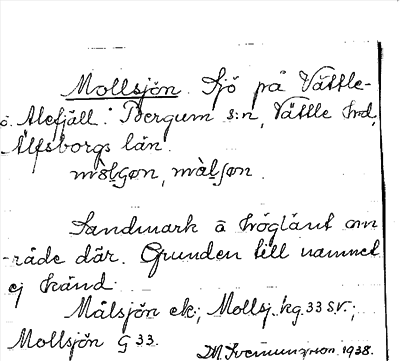 Mollsjön. Sjö på Vättle-
o. Alefjäll i Bergum s:n, Vättle hrd,
Älfsborgs län.
målsjon, målsjon.
Sandmark å höglänt om
-råde där. Grunden till namnet
ej känd.
Målsjön ek; Mollsj. kg. 33 S.V.;
Mollsjön G 33.
1938.